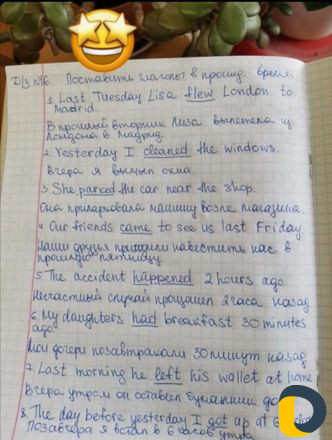 Д/З №6. Поставить глаголы в прошед. время
1. Last Tuesday Lisa flew London to
Madrid.
В прошлый вторник Лиза вылетела из
Лондона в Мадрид.
2. Yesterday I cleaned the windows.
Вчера я мыл окна.
3. She parked the car near the shop.
Она припарковала машину возле магазина.
4. Our friends came to see us last Friday.
Наши друзья приходили навестить нас в
прошлую пятницу.
5. The accident happened 2 hours ago
Несчастный случай произошел 2 часа назад
6. My daughters had breakfast 30 minutes
ago
Мои дочери позавтракали 30 минут назад
7. Last morning he left his wallet at home
Вчера утром он оставил бумажник
8. The day before yesterday I got up at 6
Позавчера я встал в 6 часов утра